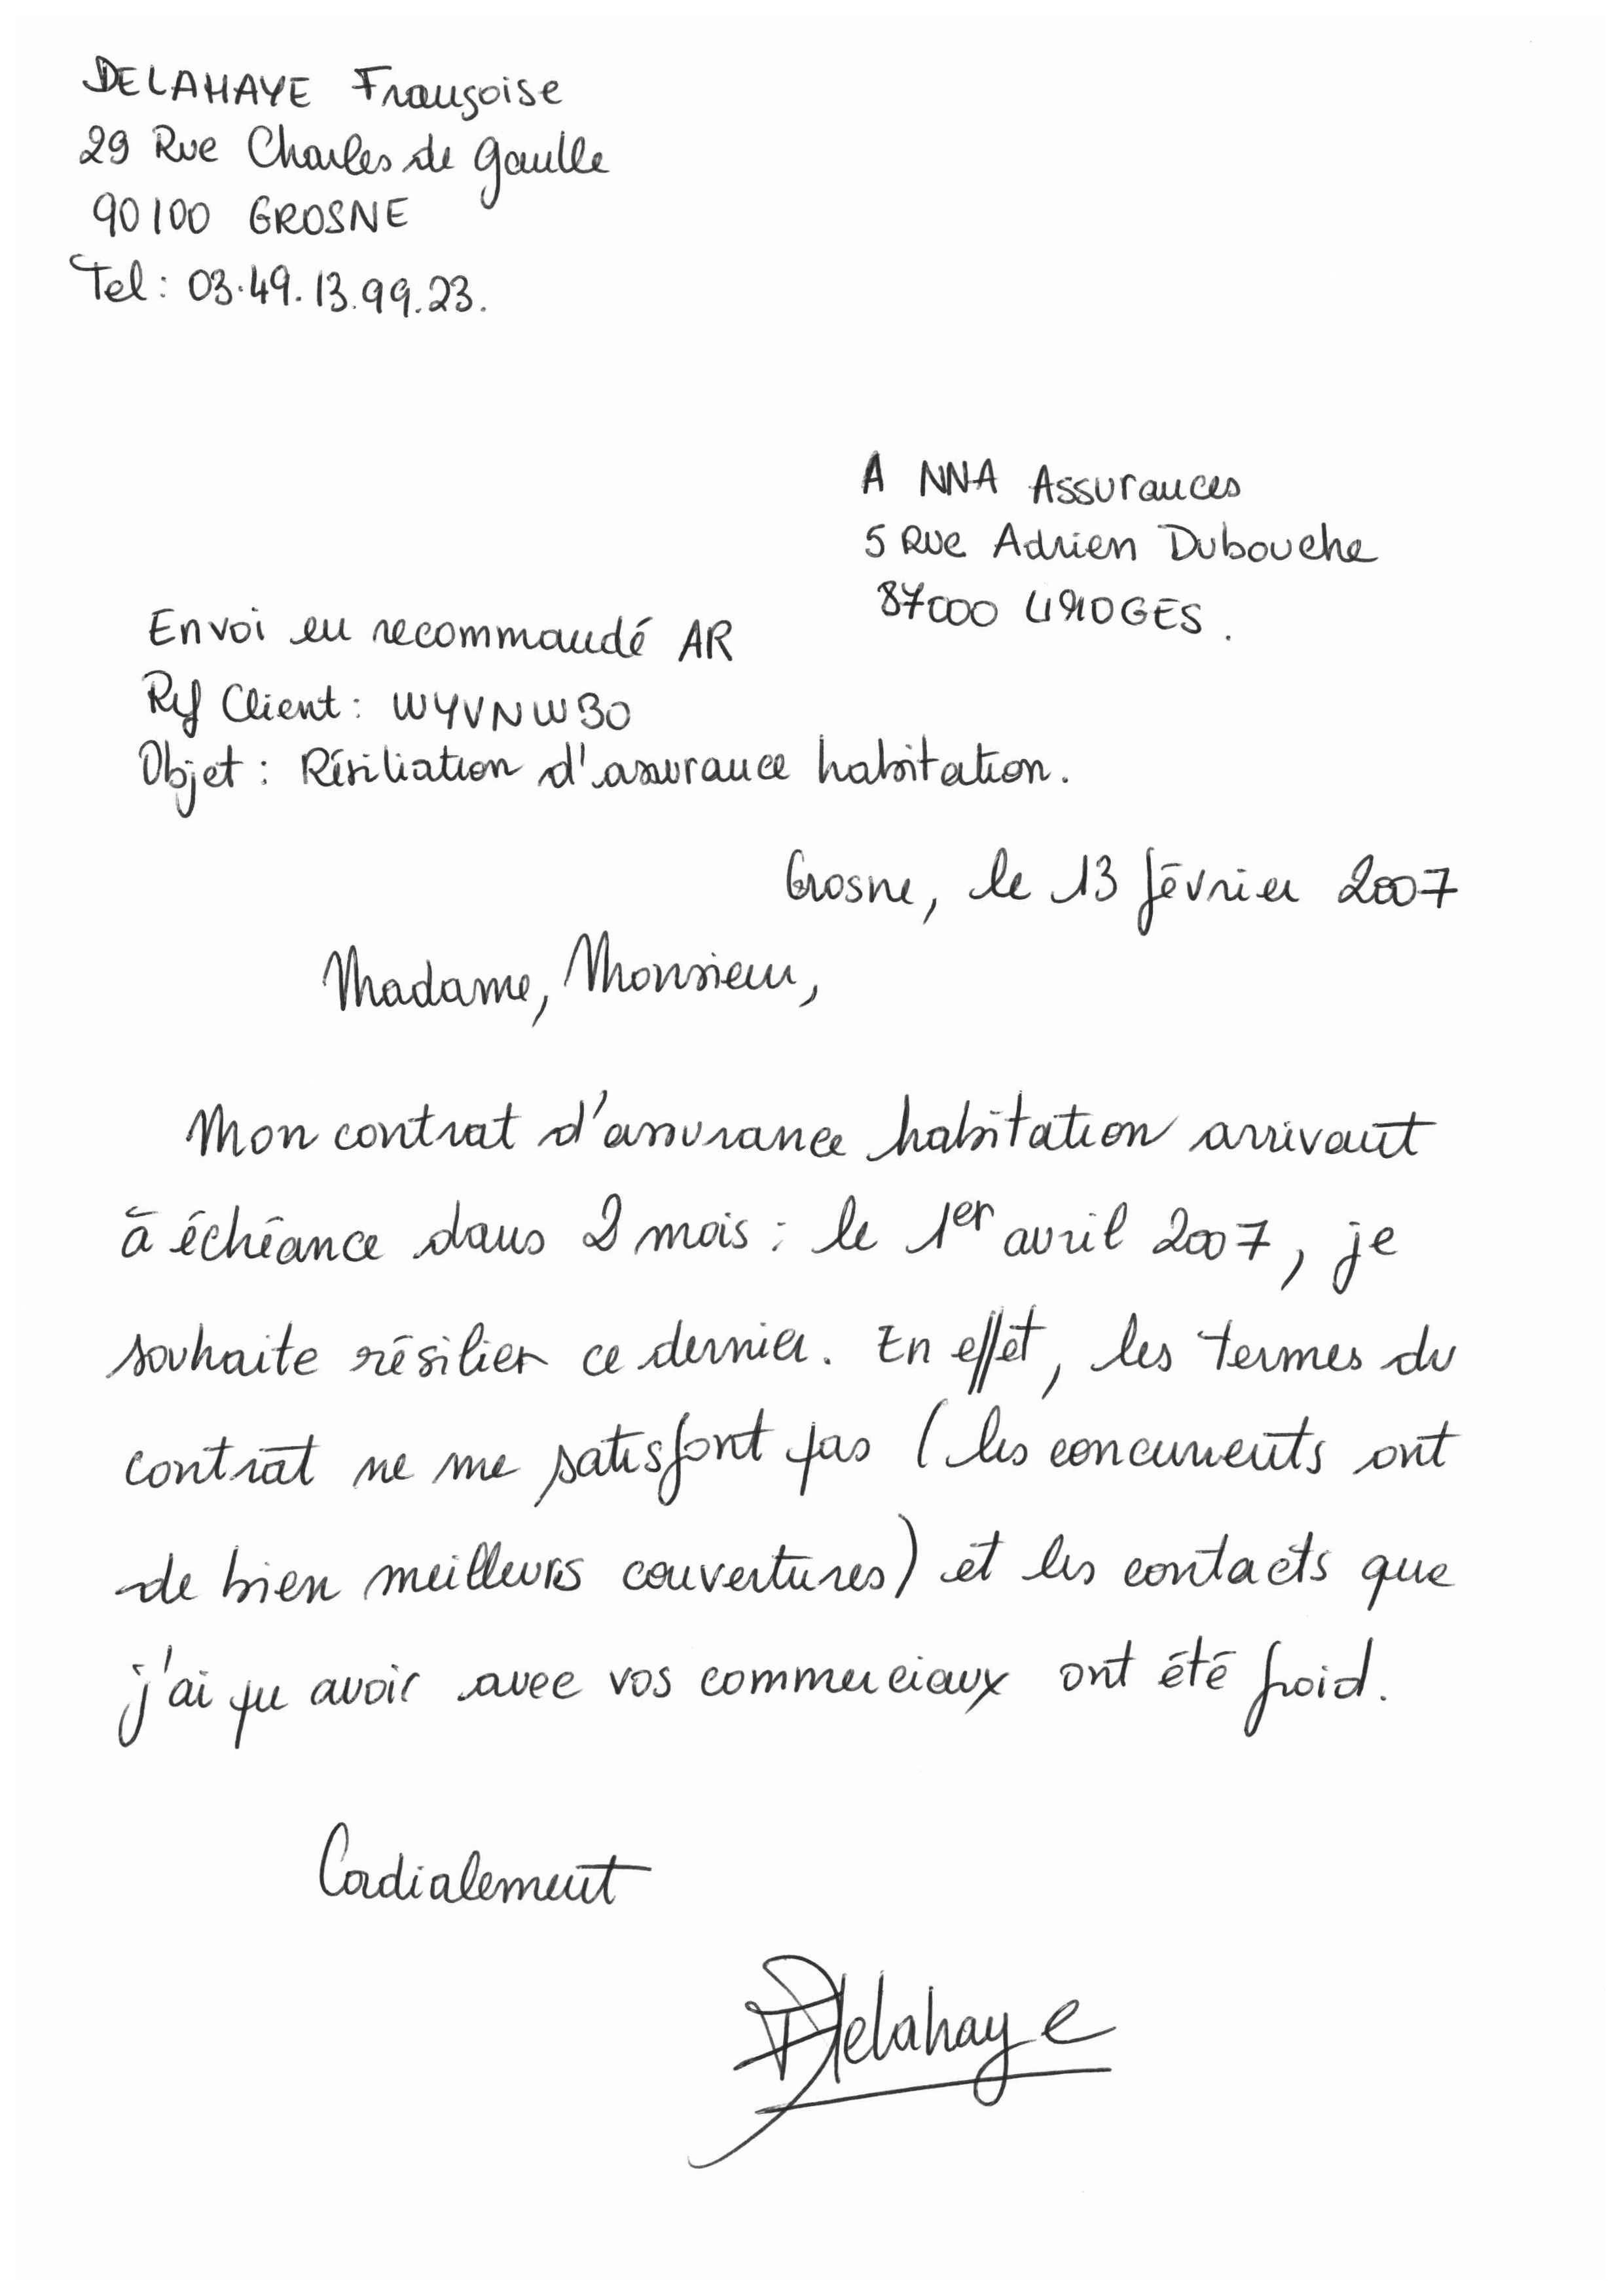 DELAHAYE Françoise
29 Rue Charles de Gaulle
90100 GROSNE
Tel : 03.49.13.99.23.
A NNA Assurances
5 Rue Adrien Dubouche
87000 LIMOGES.
Envoi en recommandé AR
Ref Client : WYVNW30
Objet : Résiliation d'assurance habitation.
Grosne, le 13 février 2007
Madame, Monsieur,
Mon contrat d'assurance habitation arrivant
à échéance dans 2 mois : le 1er avril 2007, je
souhaite résilier ce dernier. En effet, les termes du
contrat ne me satisfont pas (les concurrents ont
de bien meilleurs couvertures) et les contacts que
j'ai pu avoir avec vos commerciaux ont été froid.
Cordialement
Delahaye